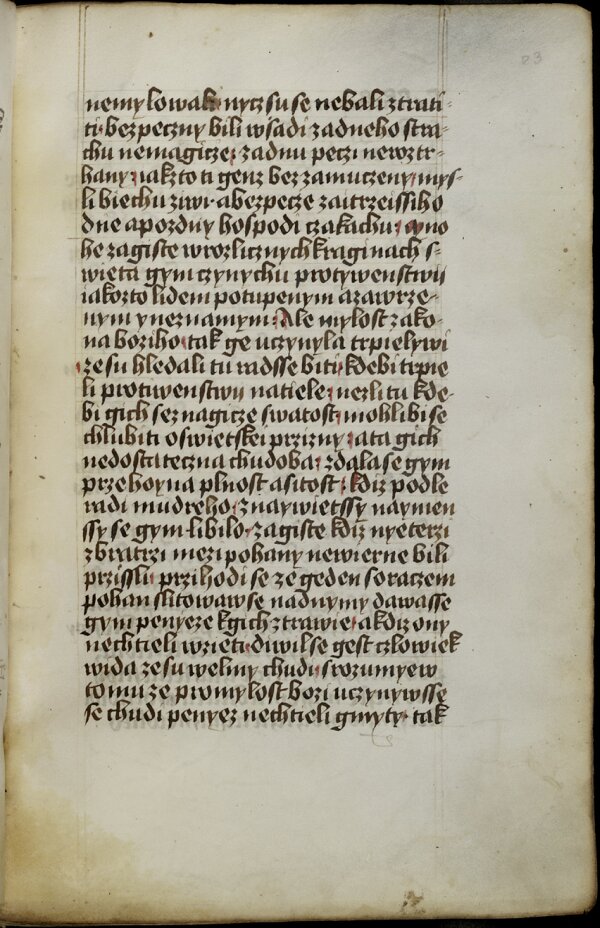 nemylowali nycz su se nebali ztrati-
ti bezpeczny bili wsadi zadneho stra-
chu nemagicze zadnu peczi neroztr-
hany iakzto ti genz bez zamuczeny mys-
li biechu ziwi abezpecze zaitrzeissiho
dne apozdny hospodi czakachu mno
he zagiste wrozlicznych kraginach s-
wieta gym czynychu protywenstwij
iakozto lidem potupenym azawrze-
nym yneznamym Ale mylost zako-
na boziho tak ge uczynyla trpieliwi
ze su hledali tu radsse biti kdebi trpie
li protiwenstwij natiele nezli tu kde-
bi gich seznagicze swatost mohli bi se
chlubiti oswietskei przizny ata gich
nedostateczna chudoba zdala se gym
przehoyna plnost asitost kdiz podle
radi mudreho znaywietssy naymen
ssy se gym libilo zagiste kdiz nyeterzi
zbratrzi mezi pohany newierne bili
przissli przihodi se ze geden soraczem
pohan slitowaw se nadnymy dawasse
gym penyeze kgich ztrawie akdiz ony
nechtieli wzieti diwil se gest czlowiek
wida ze su welmy chudi srozumyew
tomu ze promylost bozi uczynywsse
se chudi penyez nechtieli gmyty tak